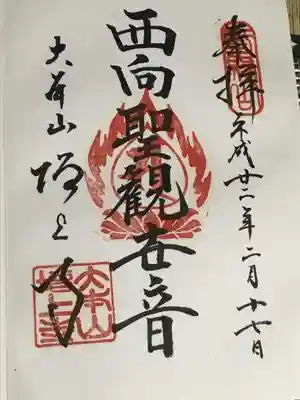 奉拝 平成廿二年二月十七日
西向聖觀世音
大本山 増上寺
大本山
増上寺